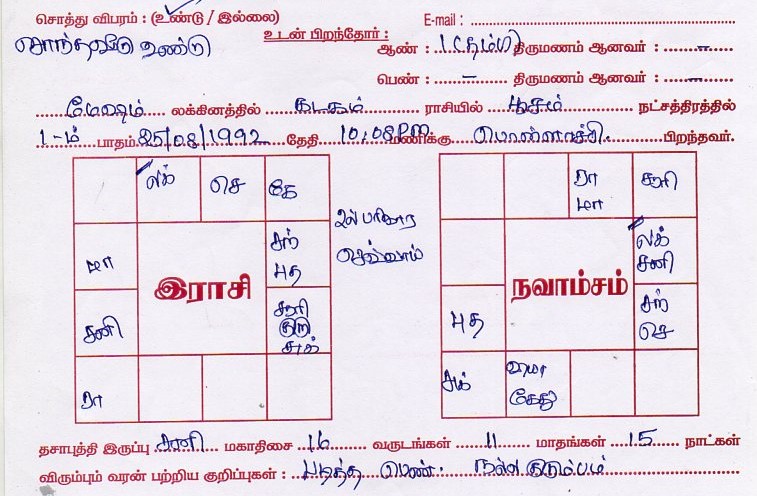 சொத்து விபரம் : (உண்டு / இல்லை) E-mail :
சொந்தவீடு உண்டு
உடன் பிறந்தோர் :
ஆண் : 1 (தம்பி) திருமணம் ஆனவர் : –
பெண் : – திருமணம் ஆனவர் : –
மேஷம் லக்கினத்தில் கடகம் ராசியில் பூசம் நட்சத்திரத்தில்
1-ம் பாதம் 25/08/1992 தேதி 10:08PM மணிக்கு பொள்ளாச்சி பிறந்தவர்.
லக் செ கே
சந் புத
மா
இராசி
சனி
சூரி குரு சுக்
ரா
உள் பரிகார செவ்வாய்
ரா மா சூரி
லக் சனி
நவாம்சம்
புத
சந் செ
சுக்
கேது
தசாபுத்தி இருப்பு சனி மகாதிசை 16 வருடங்கள் 11 மாதங்கள் 15 நாட்கள்
விரும்பும் வரன் பற்றிய குறிப்புகள் : படித்த பெண். நல்ல குடும்பம்